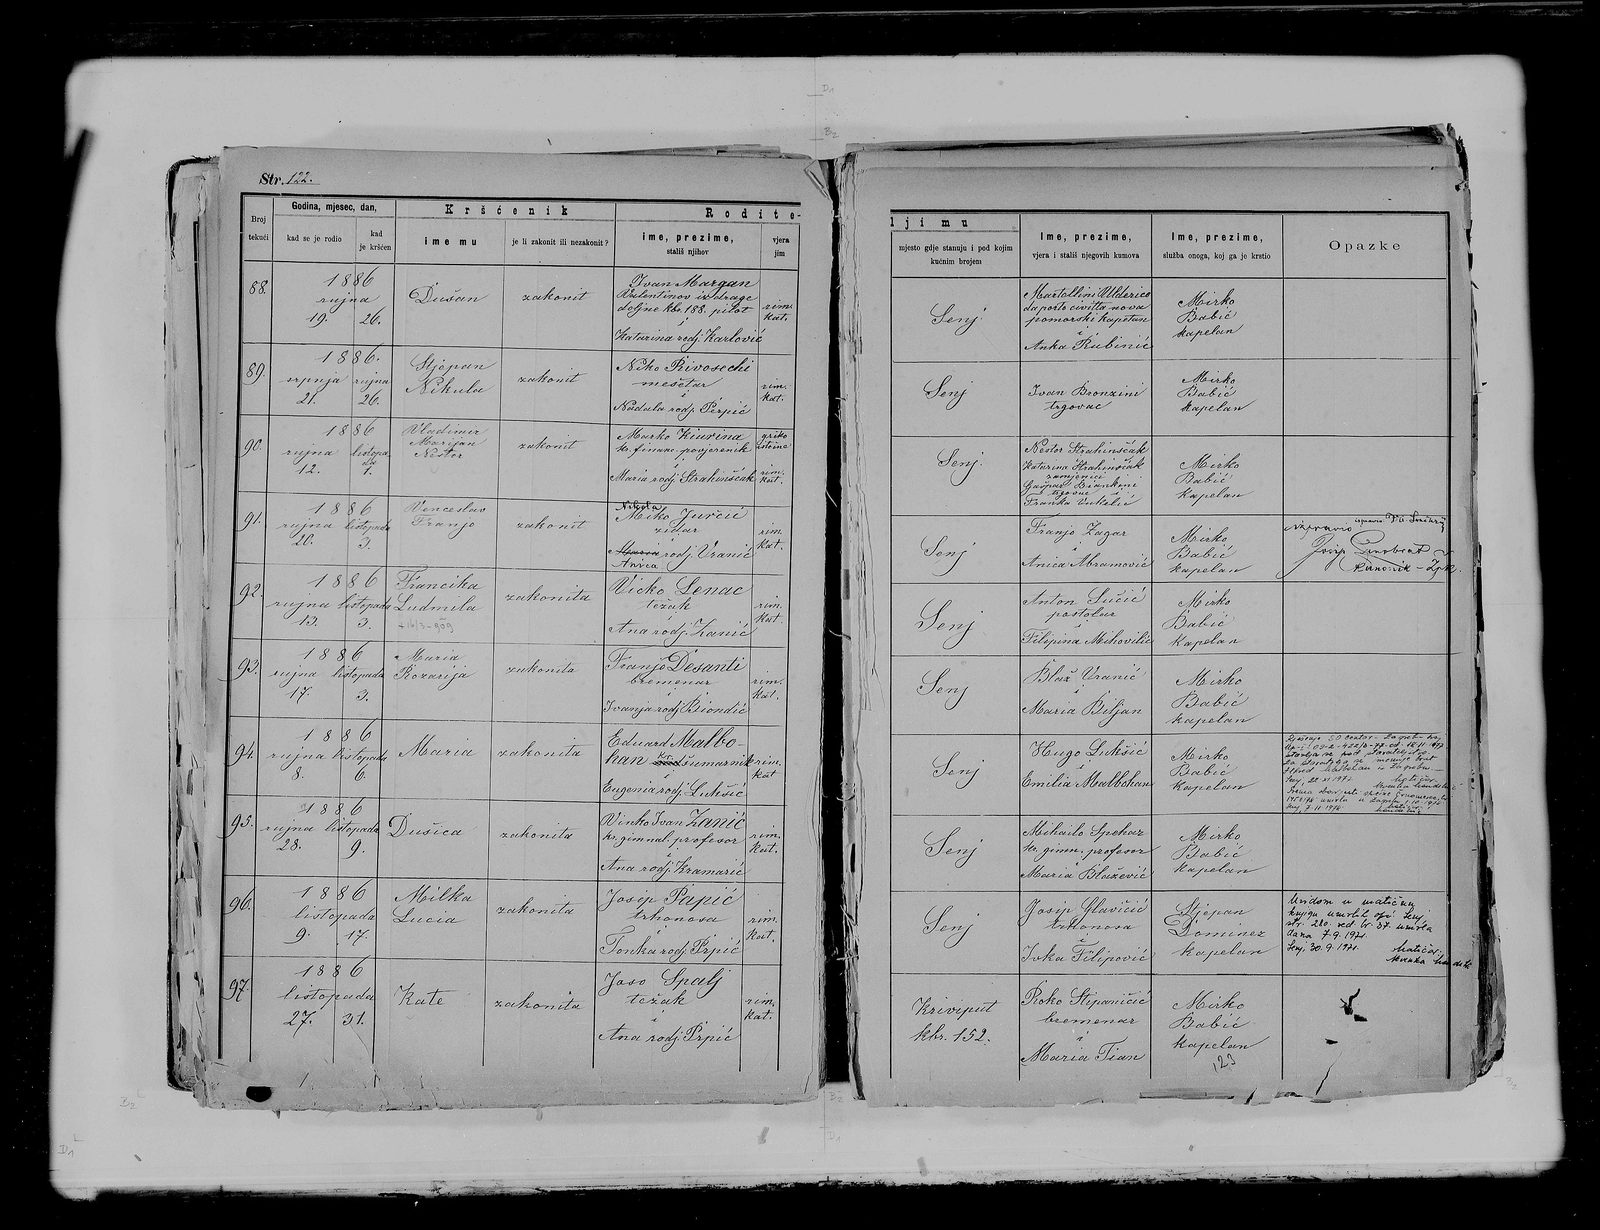 Str. 122.
Broj tekući
Godina, mjesec, dan,
kad se je rodio
kad je kršćen
Kršćenik
ime mu
je li zakonit ili nezakonit?
Rodite-
ime, prezime,
stališ njihov
vjera jim
ljimu
mjesto gdje stanuju i pod kojim
kućnim brojem
Ime, prezime,
vjera i stališ njegovih kumova
Ime, prezime,
služba onoga, koj ga je krstio
Opazke
88.
1886
rujna
19. 26.
Dušan
zakonit
Ivan Margan
Valentinov iz drage
doljne kbr. 188. pilot
i
Katarina rodj. Karlović
rim.
kat.
Senj
Martellini Ulderico
da porto civitta nova
pomorski kapetan
i
Anka Rubinić
Mirko
Babić
kapelan
89.
1886.
srpnja rujna
21. 26.
Stjepan
Nikula
zakonit
Niko Rivosechi
mešetar
i
Nadala rodj. Prpić
rim.
kat.
Senj
Ivan Bronzini
trgovac
Mirko
Babić
kapelan
90.
1886
rujna listopa
da
12. 1.
Vladimir
Marijan
Nestor
zakonit
Marko Kiurina
kr. financ. povjerenik
i
Maria rodj. Strahinščak
grčko
istočne
rim.
kat.
Senj.
Nestor Strahinščak
Katarina Strahinščak
zamjenici
Gašpar Biankini
trgovac i
Franka Vukelić
Mirko
Babić
kapelan
91.
1886
rujna listopada
20. 3.
Venceslav
Franjo
zakonit
Nikola
Miko Jurčić
zidar
i
Maria rodj. Vranić
Anica
rim.
kat.
Senj
Franjo Zagar
i
Anica Abramović
Mirko
Babić
kapelan
92.
1886
rujna listopada
13. 3.
Francika
Ludmila
zakonita
Vicko Lenac
težak
i
Ana rodj. Zanić
rim.
kat.
Senj
Anton Sučić
postolar
i
Filipina Mihovilić
Mirko
Babić
kapelan
93.
1886
rujna listopada
17. 3.
Maria
Rozarija
zakonita
Franjo Desanti
bremenar
i
Ivanja rodj. Biondić
rim.
kat.
Senj
Blaž Vranić
i
Maria Biljan
Mirko
Babić
kapelan
94.
1886
rujna listopada
8. 6.
Maria
zakonita
Eduard Malbo-
han kr. šumarnik
i
Eugenia rodj. Lukšić
rim.
kat
Senj
Hugo Lukšić
i
Emilia Malbohan
Mirko
Babić
kapelan
95.
1886
rujna listopada
28. 9.
Dušica
zakonita
Vinko Ivan Zanić
kr. gimnal. profesor
i
Ana rodj. Kramarić
rim.
kat.
Senj
Mihailo Spehar
kr. gimn. profesor
i
Maria Blažević
Mirko
Babić
kapelan
96.
1886
listopada
9. 17.
Milka
Lucia
zakonita
Josip Papić
trhonosa
i
Tonka rodj. Prpić
rim.
kat.
Senj
Josip Glavičić
trhonosa
i
Ivka Filipović
Stjepan
Dominez
kapelan
Uvidom u matičnu
knjigu umrlih opć. Senj
str. 280. red. br. 37. umrla
dana 7.9.1971.
Senj, 30.9.1971.
Matičar:
97.
1886
listopada
27. 31.
Kate
zakonita
Joso Spalj
težak
i
Ana rodj. Prpić
rim.
kat.
Kriviput
kbr. 152.
Roko Stipaničić
bremenar
i
Maria Tian
Mirko
Babić
kapelan
123